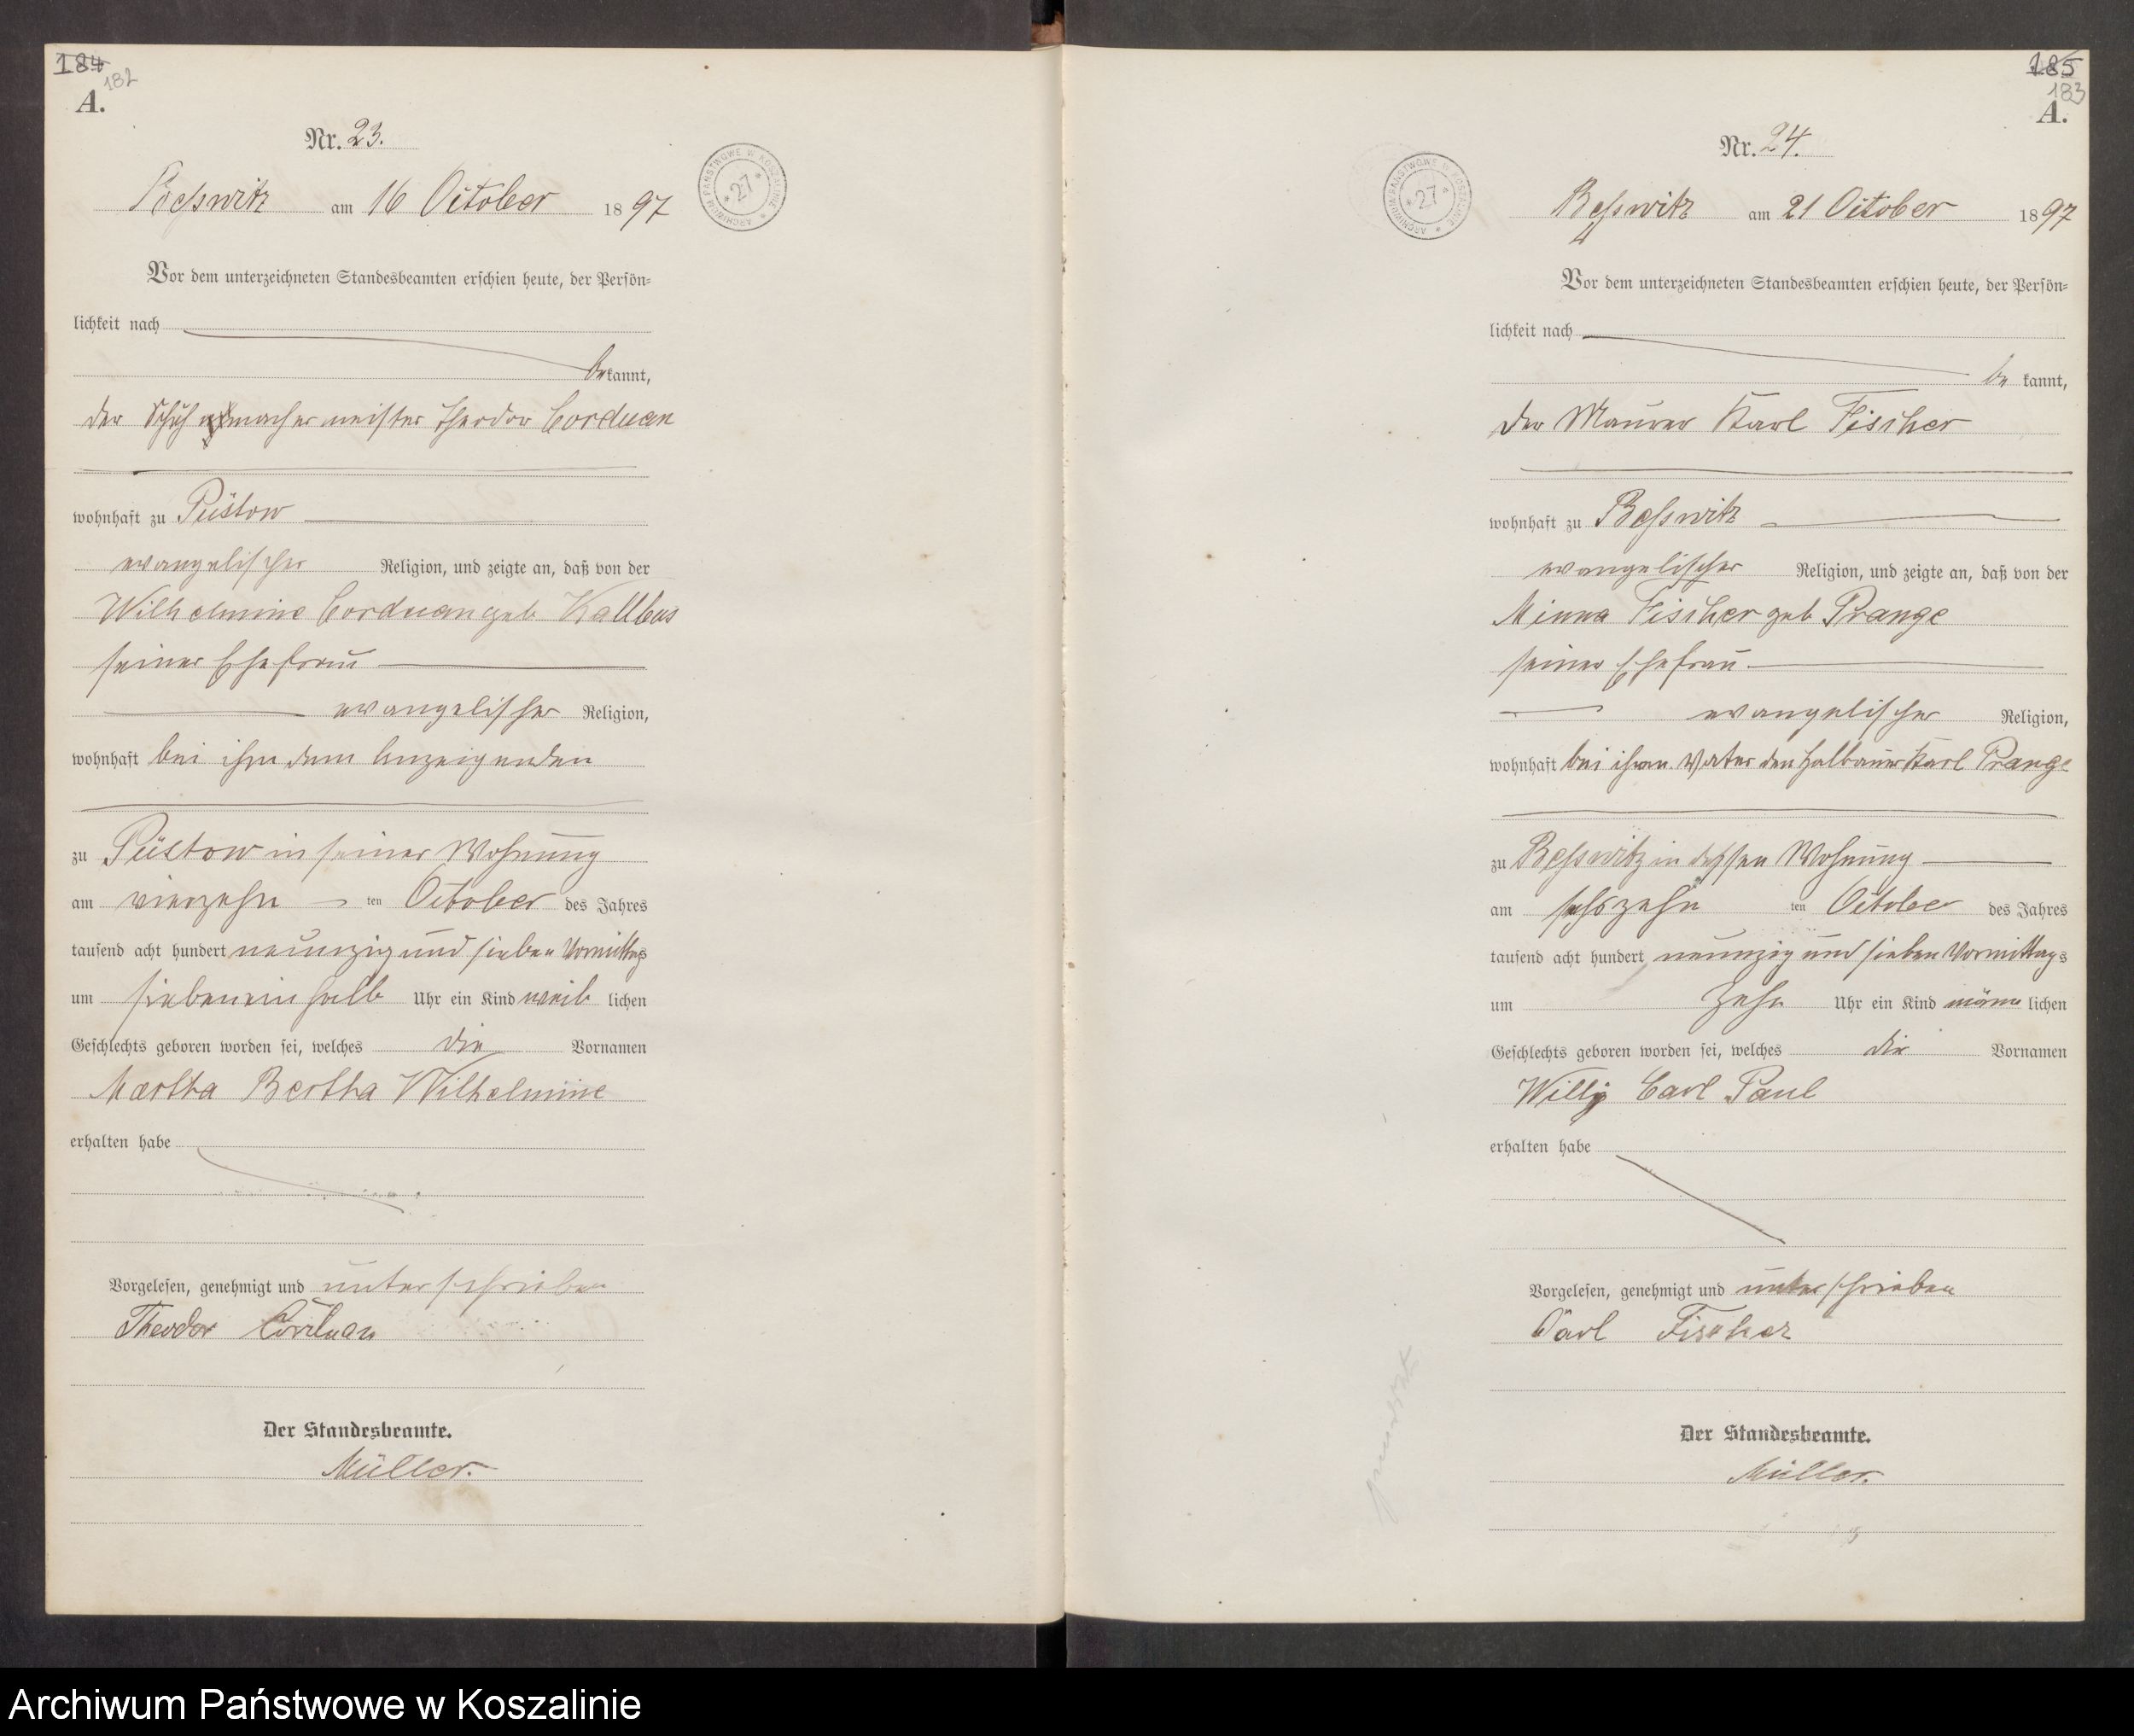 184
182
A.
Nr. 23.
Besswitz am 16 October 1897
ARCHIWUM PAŃSTWOWE W KOSZALINIE * 27 *
Vor dem unterzeichneten Standesbeamten erschien heute, der Persön-
lichkeit nach
bekannt,
der Schuhmachermeister Theodor Corduan
wohnhaft zu Püstow
evangelischer Religion, und zeigte an, daß von der
Wilhelmine Corduan geb Kallbus
seiner Ehefrau
evangelischer Religion,
wohnhaft bei ihm dem Anzeigenden
zu Püstow in seiner Wohnung
am vierzehn ten October des Jahres
tausend acht hundert neunzig und sieben Vormittags
um siebeneinhalb Uhr ein Kind weiblichen
Geschlechts geboren worden sei, welches die Vornamen
Martha Bertha Wilhelmine
erhalten habe
Vorgelesen, genehmigt und unterschrieben
Theodor Corduan
Der Standesbeamte.
Müller.
185
183
A.
Nr. 24.
ARCHIWUM PAŃSTWOWE W KOSZALINIE * 27 *
Besswitz am 21 October 1897
Vor dem unterzeichneten Standesbeamten erschien heute, der Persön-
lichkeit nach
be kannt,
der Maurer Karl Fischer
wohnhaft zu Besswitz
evangelischer Religion, und zeigte an, daß von der
Minna Fischer geb Prange
seiner Ehefrau
evangelischer Religion,
wohnhaft bei ihren Vater den Halbauer Karl Prange
zu Besswitz in dessen Wohnung
am sechszehn ten October des Jahres
tausend acht hundert neunzig und sieben Vormittags
um zehn Uhr ein Kind männlichen
Geschlechts geboren worden sei, welches die Vornamen
Willy Carl Paul
erhalten habe
Vorgelesen, genehmigt und unterschrieben
Carl Fischer
Der Standesbeamte.
Müller.
Archiwum Państwowe w Koszalinie